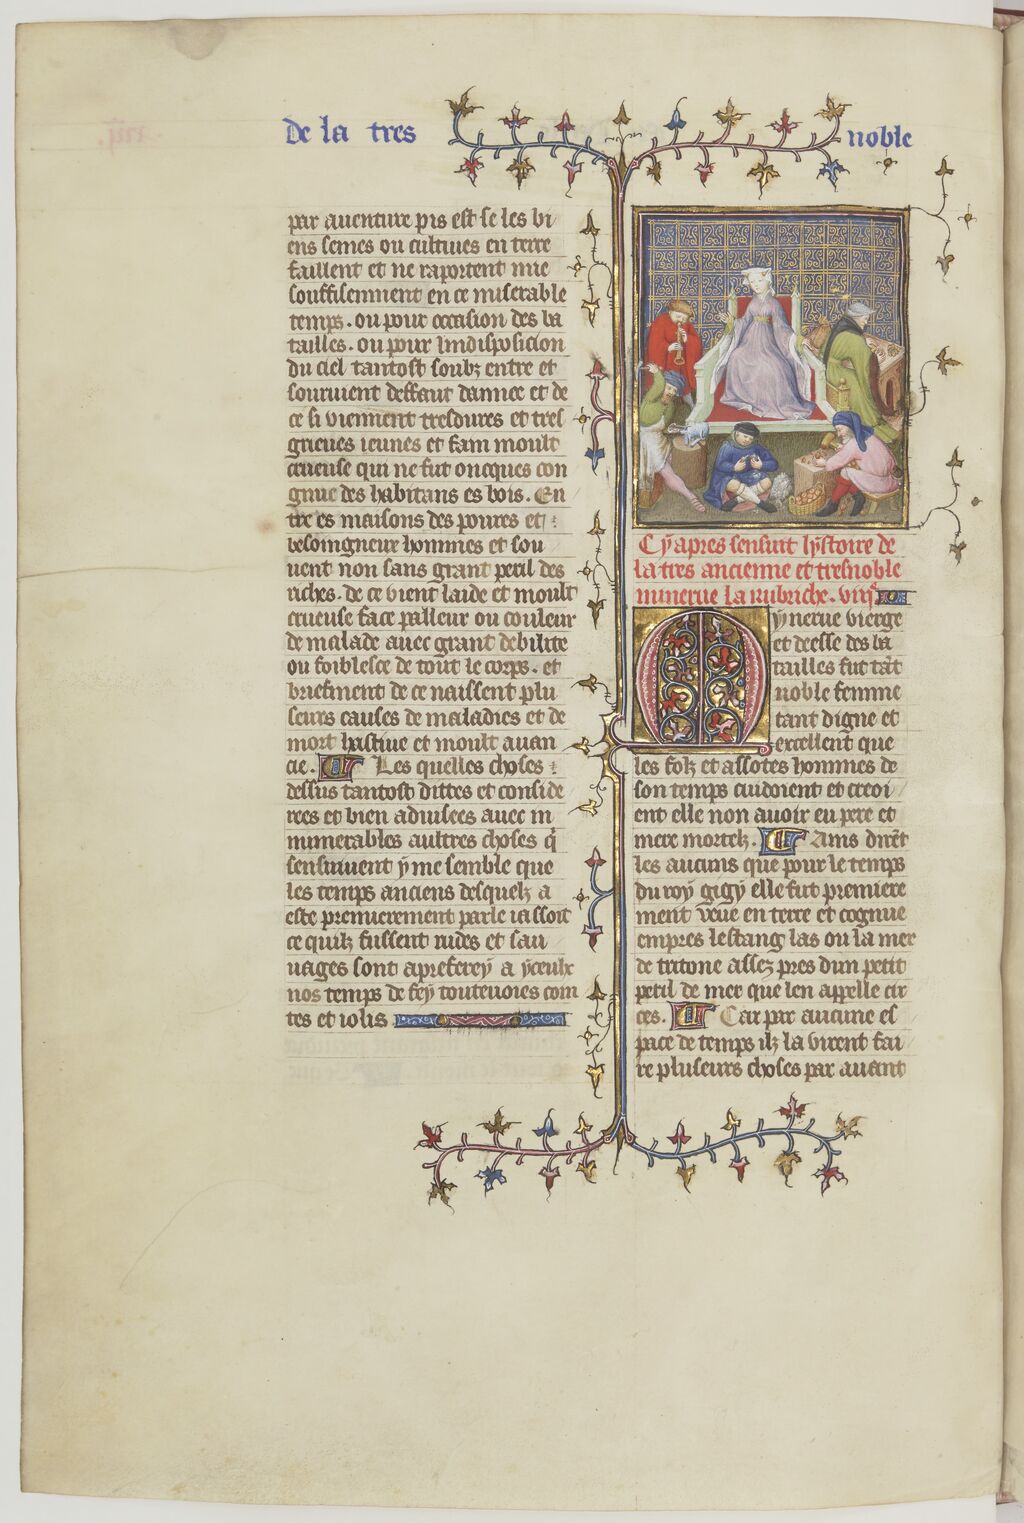 De la tres noble
par auenture pis est se les bi
ens semes ou cultiues en terre
faillent et ne raportent mie
souffisenment en ce miserable
temps. ou pour occasion des ba
tailles. ou pour lindisposicion
du ciel tantost soubz entre et
souruient deffaut dannee et de
ce si viennent tresdures et tres
grieues ieunes et fam moult
crueuse qui ne fut oncques con
gnue des habitans es bois. En
tre es maisons des poures et
besoingneux hommes et sou
uent non sans grant peril des
riches. de ce vient laide et moult
crueuse face palleur ou couleur
de malade auec grant debilite
ou foiblesce de tout le corps. et
briefment de ce naissent plu
seurs causes de maladies et de
mort hastiue et moult auan
cie. Les quelles choses
dessus tantost dittes et conside
rees et bien aduisees auec in
numerables aultres choses q̄
sensuiuent y me semble que
les temps anciens desquelz a
este premierement parle ia soit
ce quilz fussent rudes et sau
uages sont a preferer a yceulx
nos temps de fer toutenoies com
tes et iolis
Cy apres sensuit lystoire de
la tres ancienne et tresnoble
minerue la rubriche. viijᵉ
Mynerue vierge
et deesse des ba
tailles fut tāt
noble femme
tant digne et
excellent que
les folz et assotes hommes de
son temps cuidoient et creoi
ent elle non auoir eu pere et
mere mortelz. Ains dirēt
les aucuns que pour le temps
du roy gigy elle fut premiere
ment veue en terre et cognue
empres lestang las ou la mer
de tritone assez pres dun petit
petil de mer que len appelle cir
ces. Car par aucune es
pace de temps ilz la virent fai
re pluseurs choses par auant